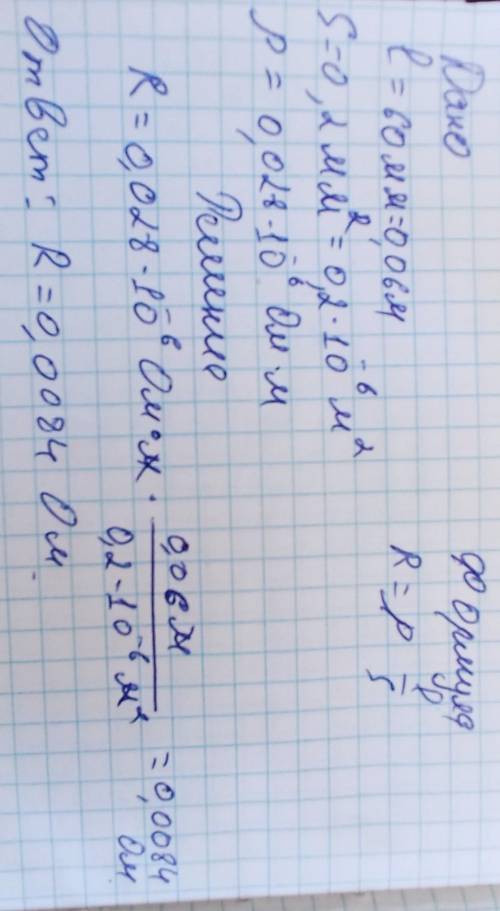 Дано
l = 60 мм = 0,06 м
S = 0,2 мм² = 0,2 · 10⁻⁶ м²
ρ = 0,028 · 10⁻⁶ Ом м
формула
R = ρ l/S
Решение
R = 0,028 · 10⁻⁶ Ом·м · 0,06 м / 0,2 · 10⁻⁶ м² = 0,0084 Ом
Ответ: R = 0,0084 Ом.